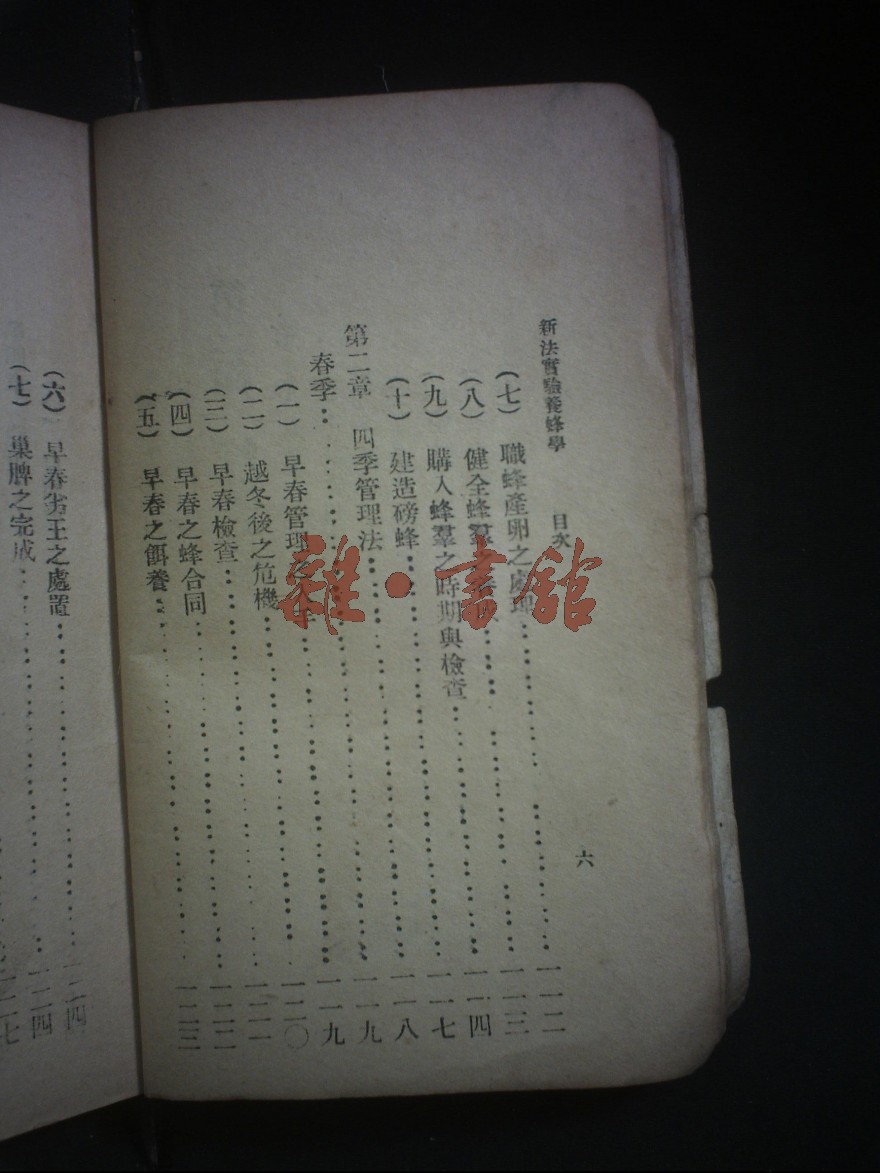 新法實驗養蜂學 目次 六
(七) 職蜂產卵之處理 一一二
(八) 健全蜂羣 一一三
(九) 購入蜂羣之時期與檢查 一一四
(十) 建造磅蜂 一一七
第二章 四季管理法 一一八
春季 一一九
(一) 早春管理之 一一九
(二) 越冬後之危機 一二〇
(三) 早春檢查 一二一
(四) 早春之蜂合同 一二二
(五) 早春之餌養 一二三
(六) 早春劣王之處置 一二四
(七) 巢脾之完成 一二四
一二七
雜·書館